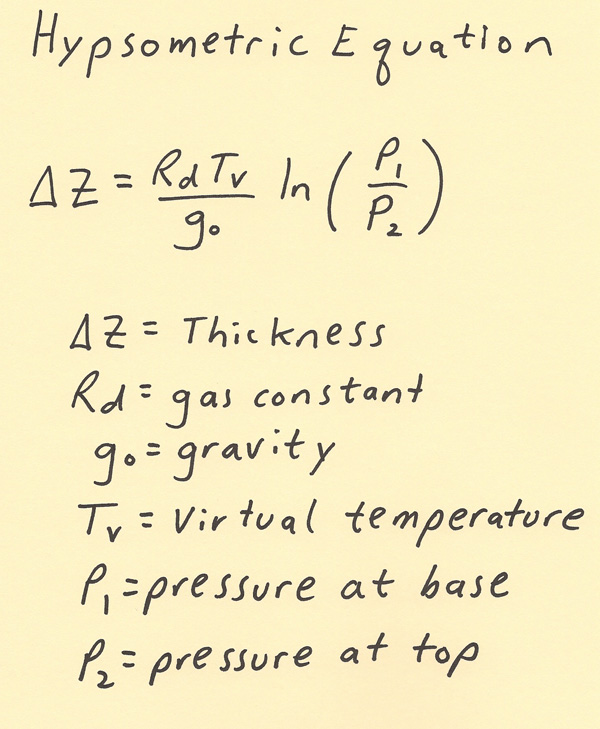 Hypsometric Equation
ΔZ = RdTv/g₀ ln(P₁/P₂)
ΔZ = Thickness
Rd = gas constant
g₀ = gravity
Tv = Virtual temperature
P₁ = pressure at base
P₂ = pressure at top